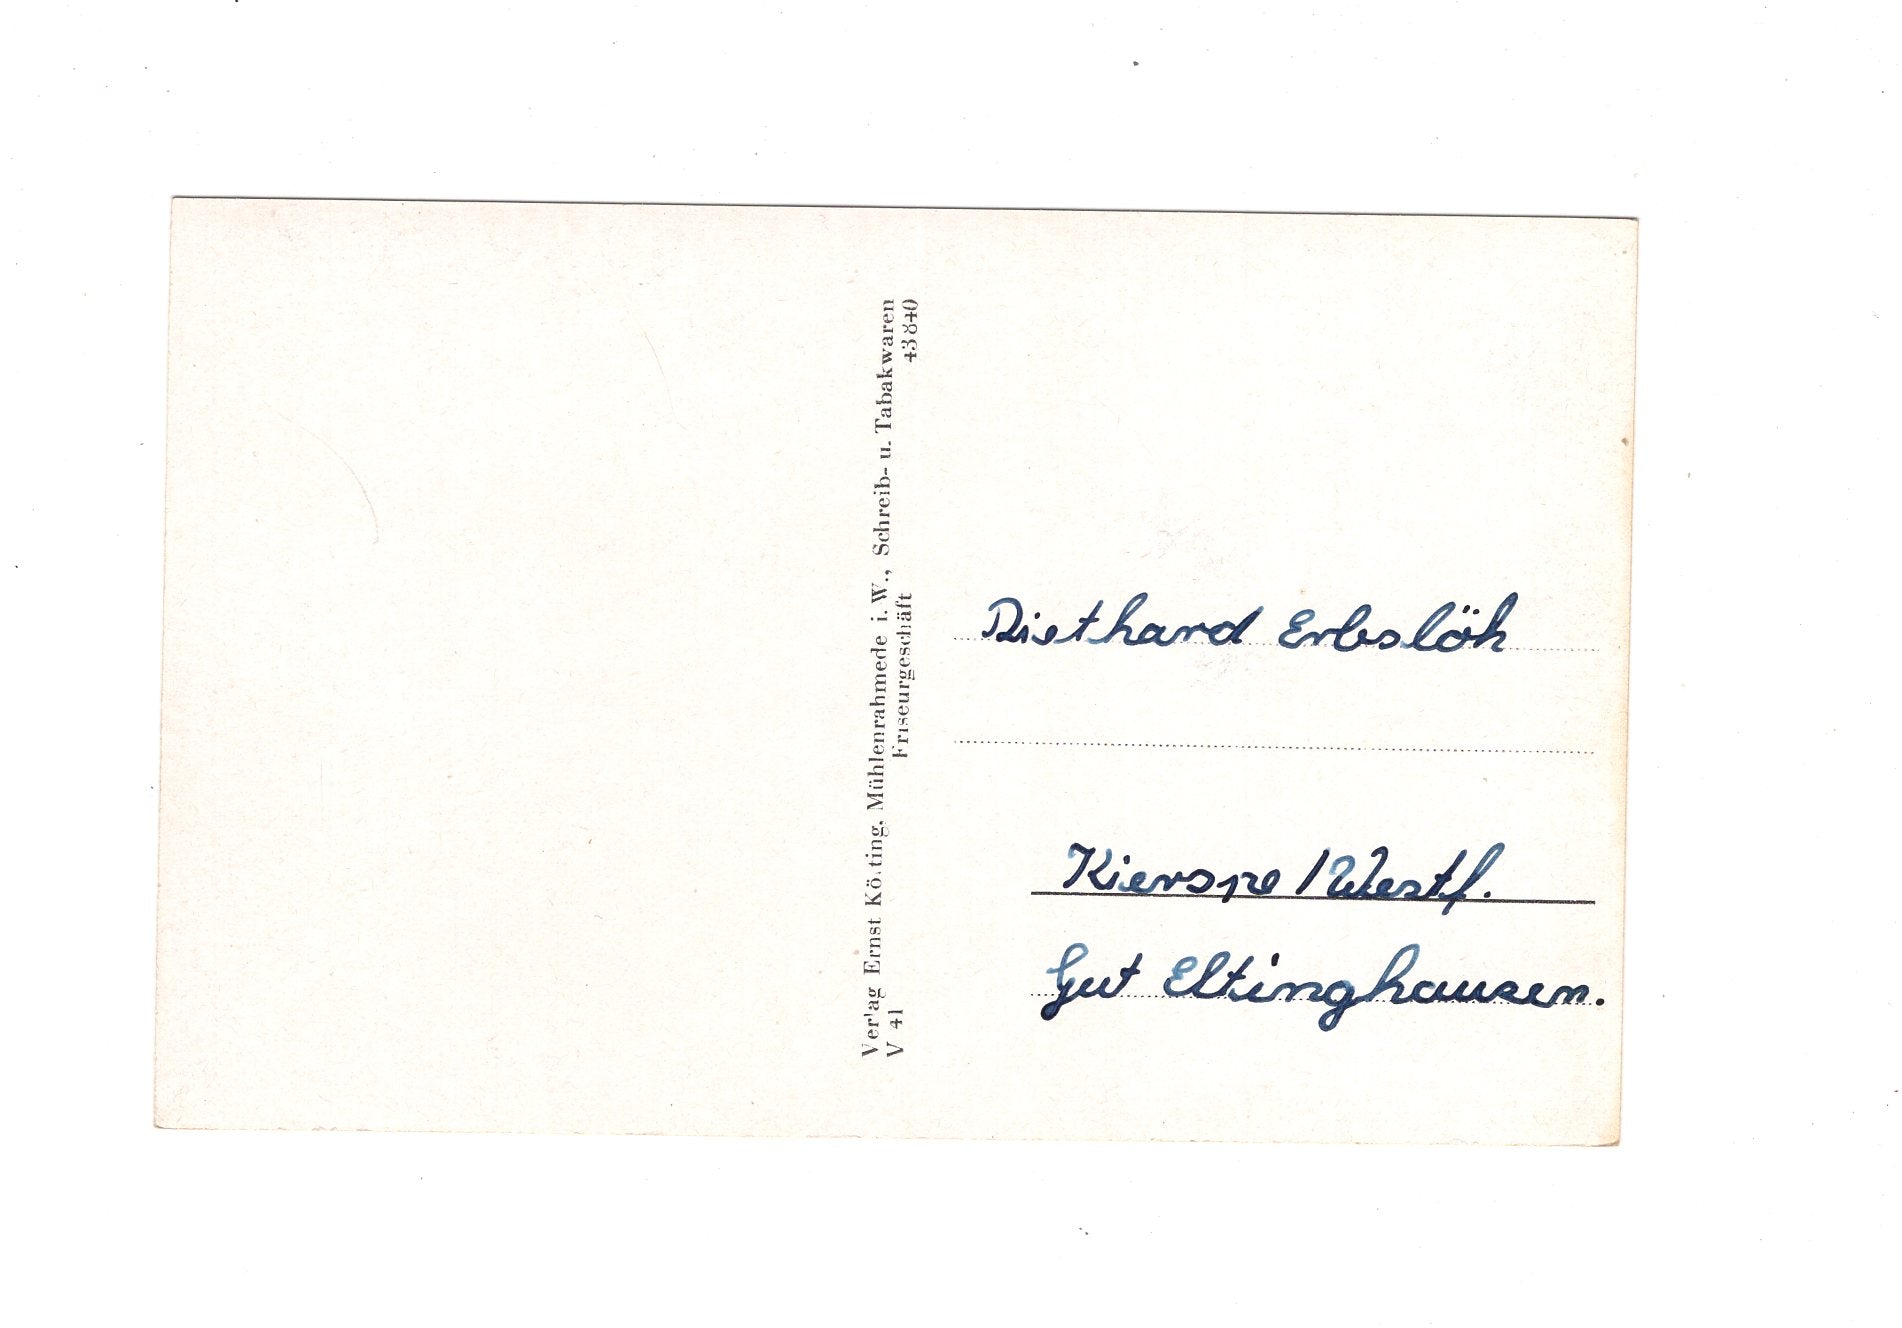 Verlag Ernst Kötting, Mühlenrahmede i. W., Schreib- u. Tabakwaren
V 41 Friseurgeschäft 43 840
Diethard Erbslöh
Kierspe / Westf.
Gut Eltinghausen.